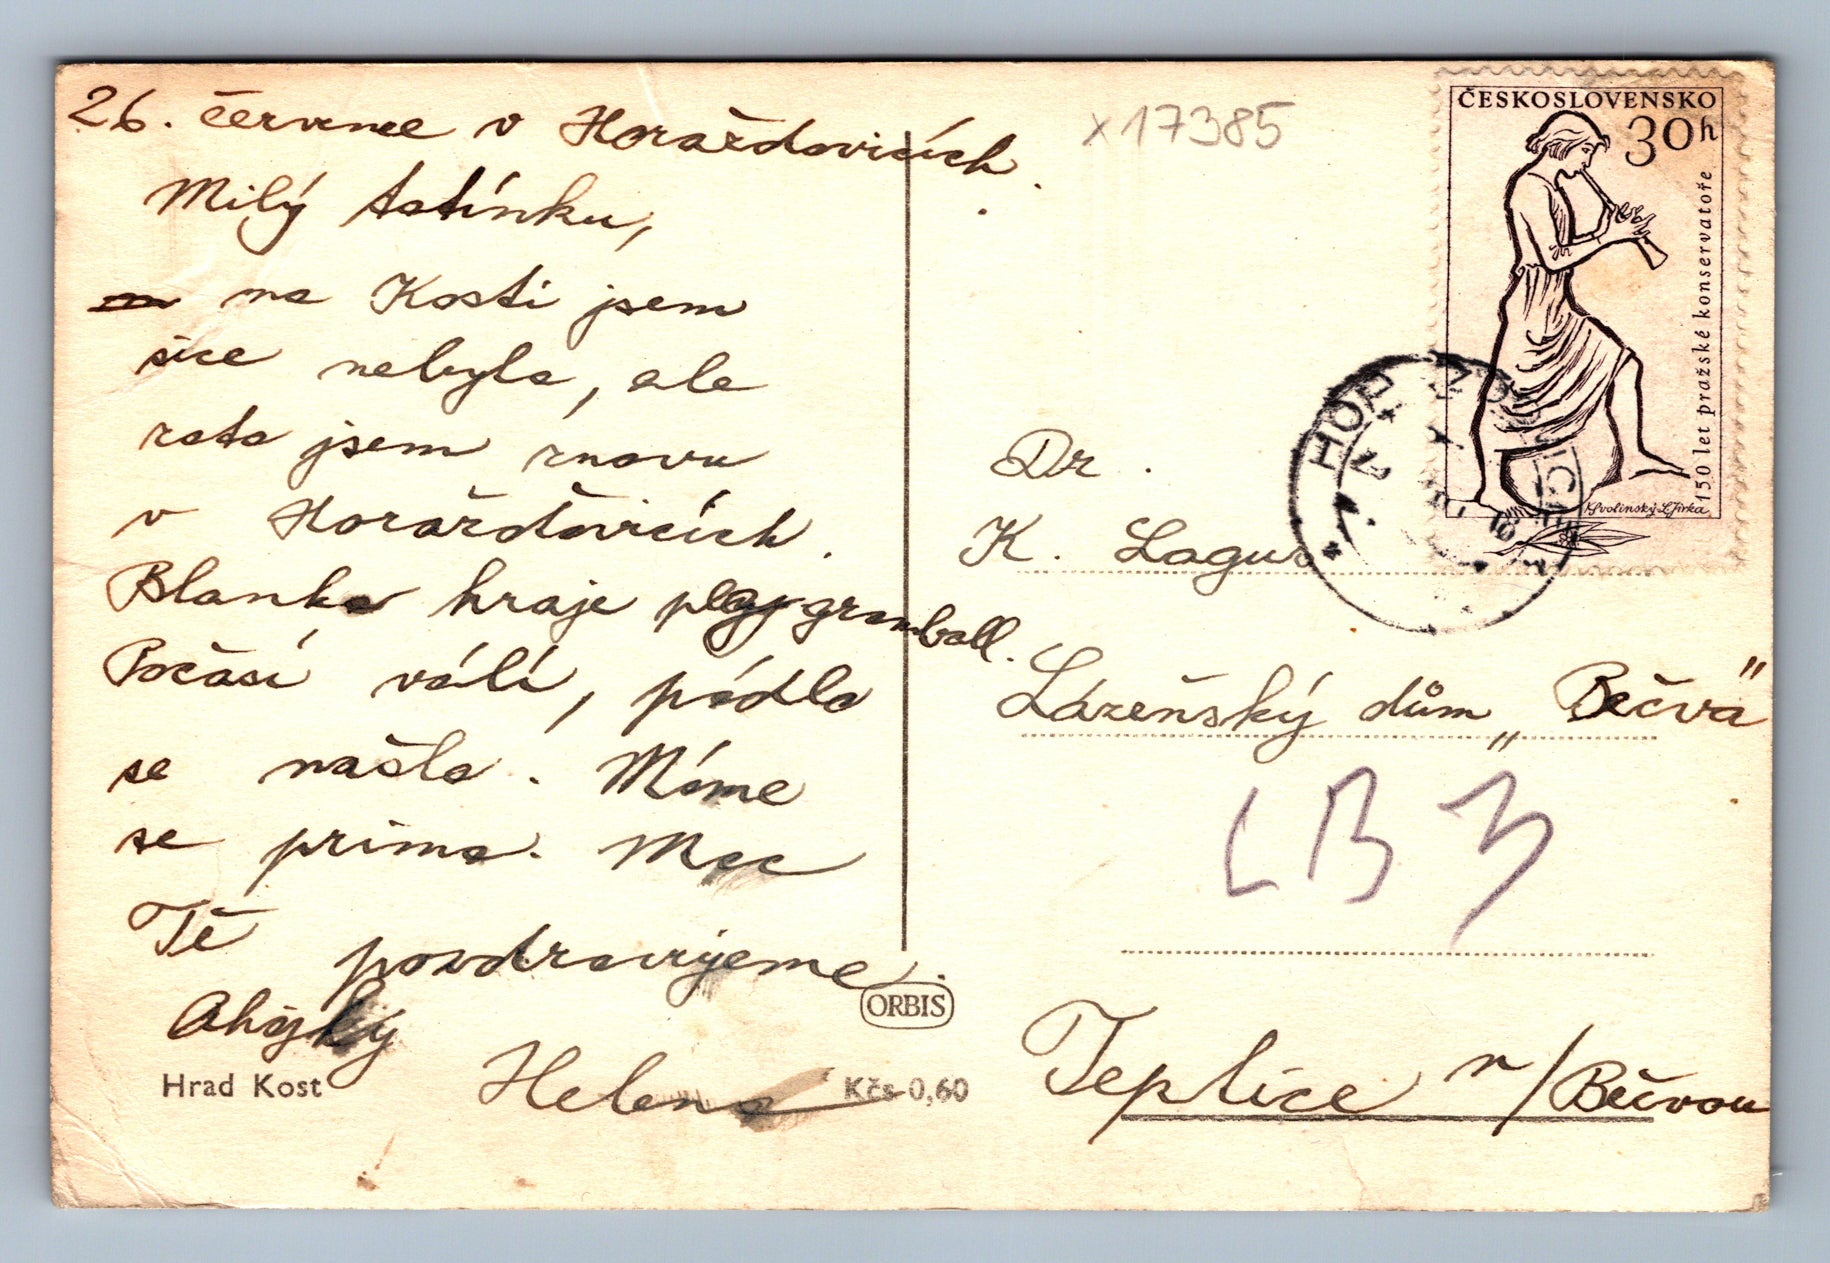 26. července v Horažďovicích.
Milý tatínku,
na Kosti jsem
sice nebyla, ale
zato jsem znovu
v Horažďovicích.
Blanka hraje
ball.
Počasí válí, pádla
se našla. Máme
se prima. Moc
Tě pozdravujeme.
Helena
Hrad Kost
ORBIS
Kčs 0,60
x 17385
ČESKOSLOVENSKO
30h
150 let pražské konservatoře
K. Svolinský L. Jirka
Dr.
K. Lagus
Lázeňský dům „Bečva"
LB 3
Teplice n/Bečvou